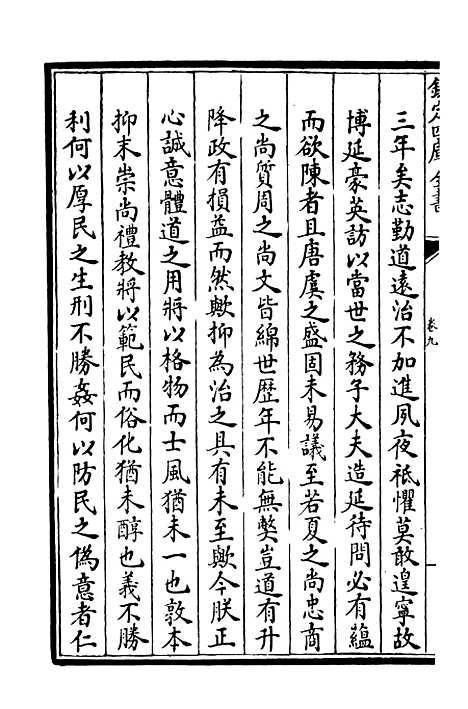 欽定四庫全書
卷九
三年矣志勤道遠治不加進夙夜祗懼莫敢遑寧故
博延豪英訪以當世之務子大夫造延待問必有蘊
而欲陳者且唐虞之盛固未易議至若夏之尚忠商
之尚質周之尚文皆綿世歴年不能無弊豈道有升
降政有損益而然歟抑為治之具有未至歟今朕正
心誠意體道之用將以格物而士風猶未一也敦本
抑末崇尚禮教將以範民而俗化猶未醇也義不勝
利何以厚民之生刑不勝姦何以防民之偽意者仁